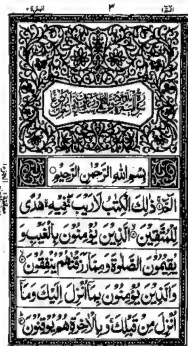 ٣
بِسْمِ اللهِ الرَّحْمٰنِ الرَّحِيْمِ
الٓمّٓ ذٰلِكَ الْكِتٰبُ لَا رَيْبَ فِيْهِ هُدًى
لِّلْمُتَّقِيْنَ الَّذِيْنَ يُؤْمِنُوْنَ بِالْغَيْبِ وَ
يُقِيْمُوْنَ الصَّلٰوةَ وَمِمَّا رَزَقْنٰهُمْ يُنْفِقُوْنَ
وَالَّذِيْنَ يُؤْمِنُوْنَ بِمَا اُنْزِلَ اِلَيْكَ وَمَا
اُنْزِلَ مِنْ قَبْلِكَ وَبِالْاٰخِرَةِ هُمْ يُوْقِنُوْنَ